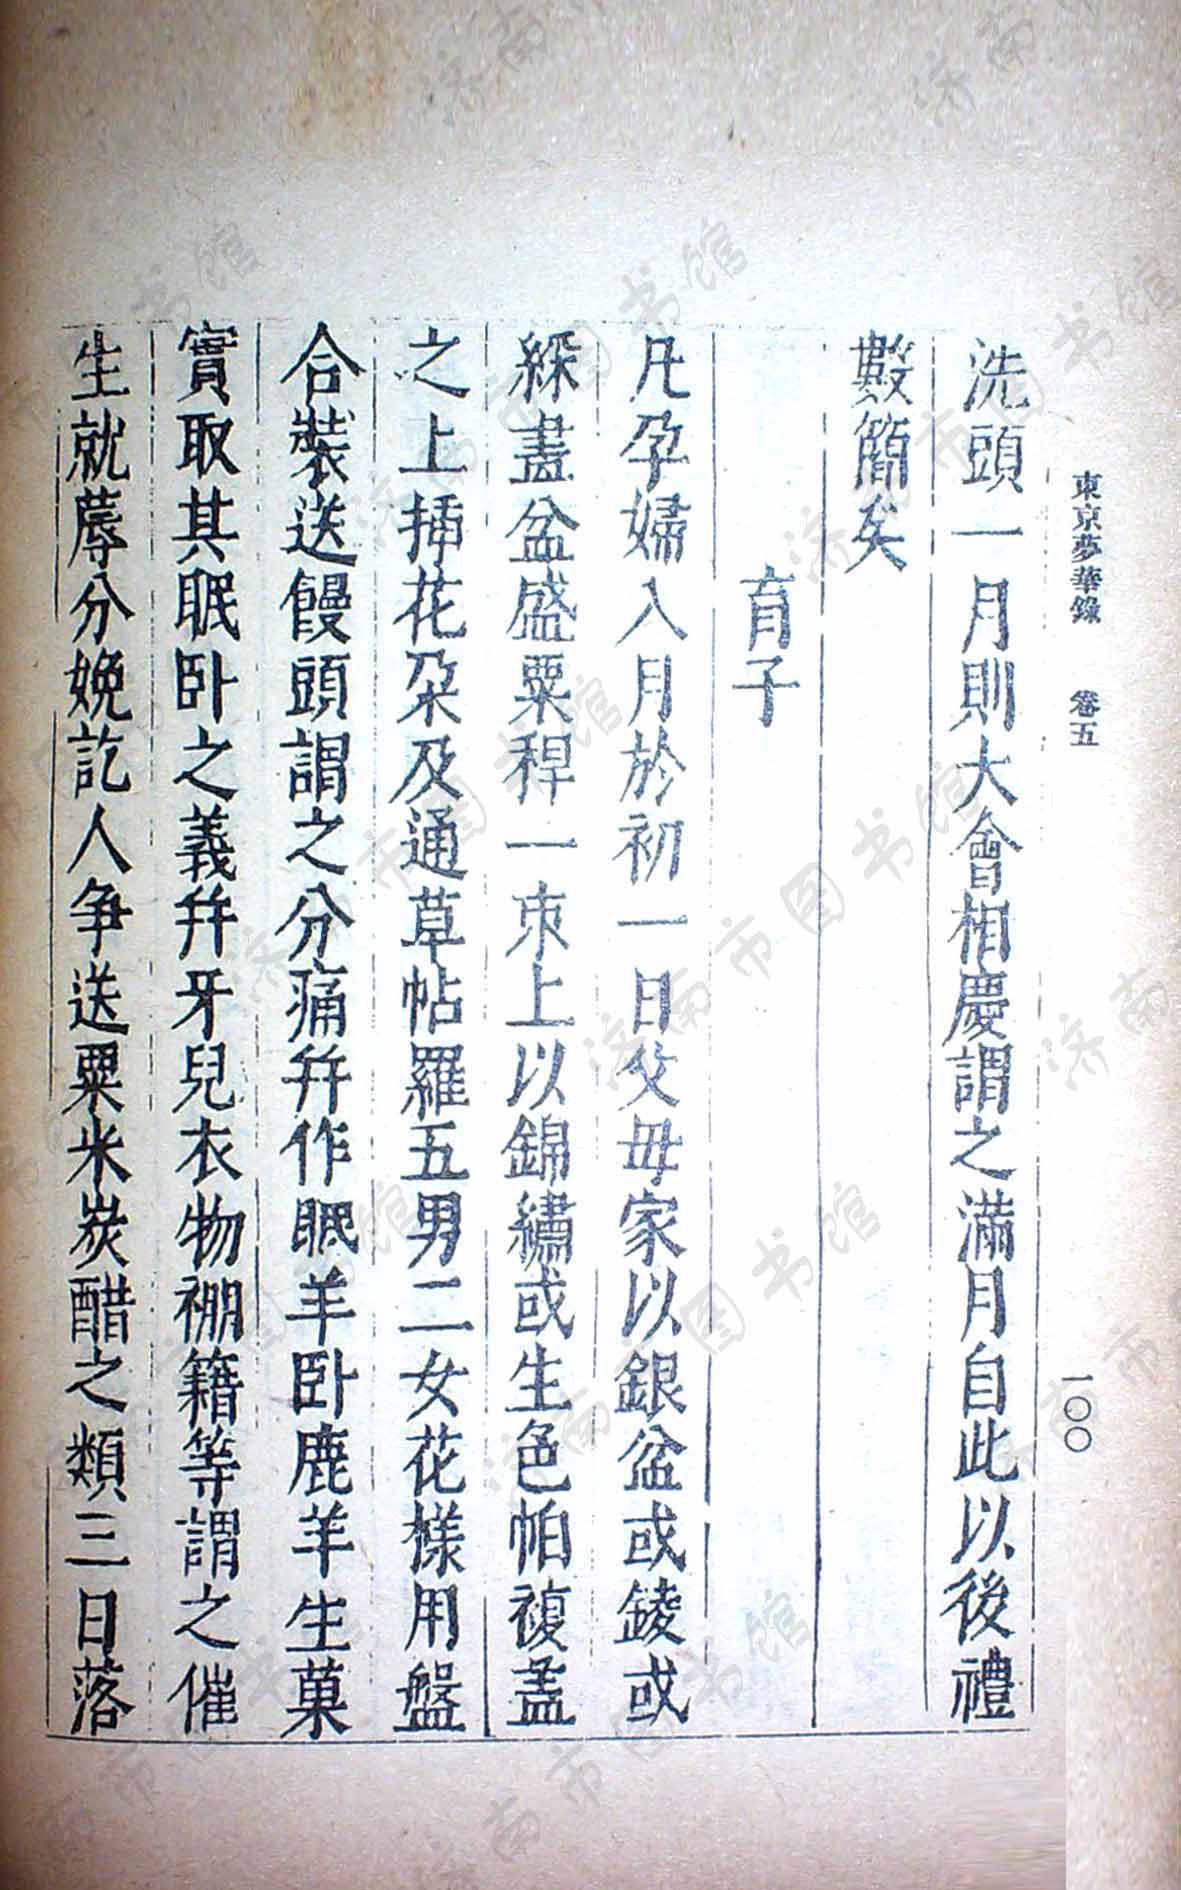 東京夢華錄　卷五　一〇〇
洗頭一月則大會相慶謂之滿月自此以後禮
數簡矣
育子
凡孕婦入月於初一日父母家以銀盆或錂或
綵畫盆盛粟稈一朿上以錦繡或生色帕複蓋
之上揷花朵及通草帖羅五男二女花樣用盤
合裝送饅頭謂之分痛幷作眠羊臥鹿羊生菓
實取其眠臥之義幷牙兒衣物襧籍等謂之催
生就蓐分娩訖人争送粟米炭醋之類三日落
济南市图书馆